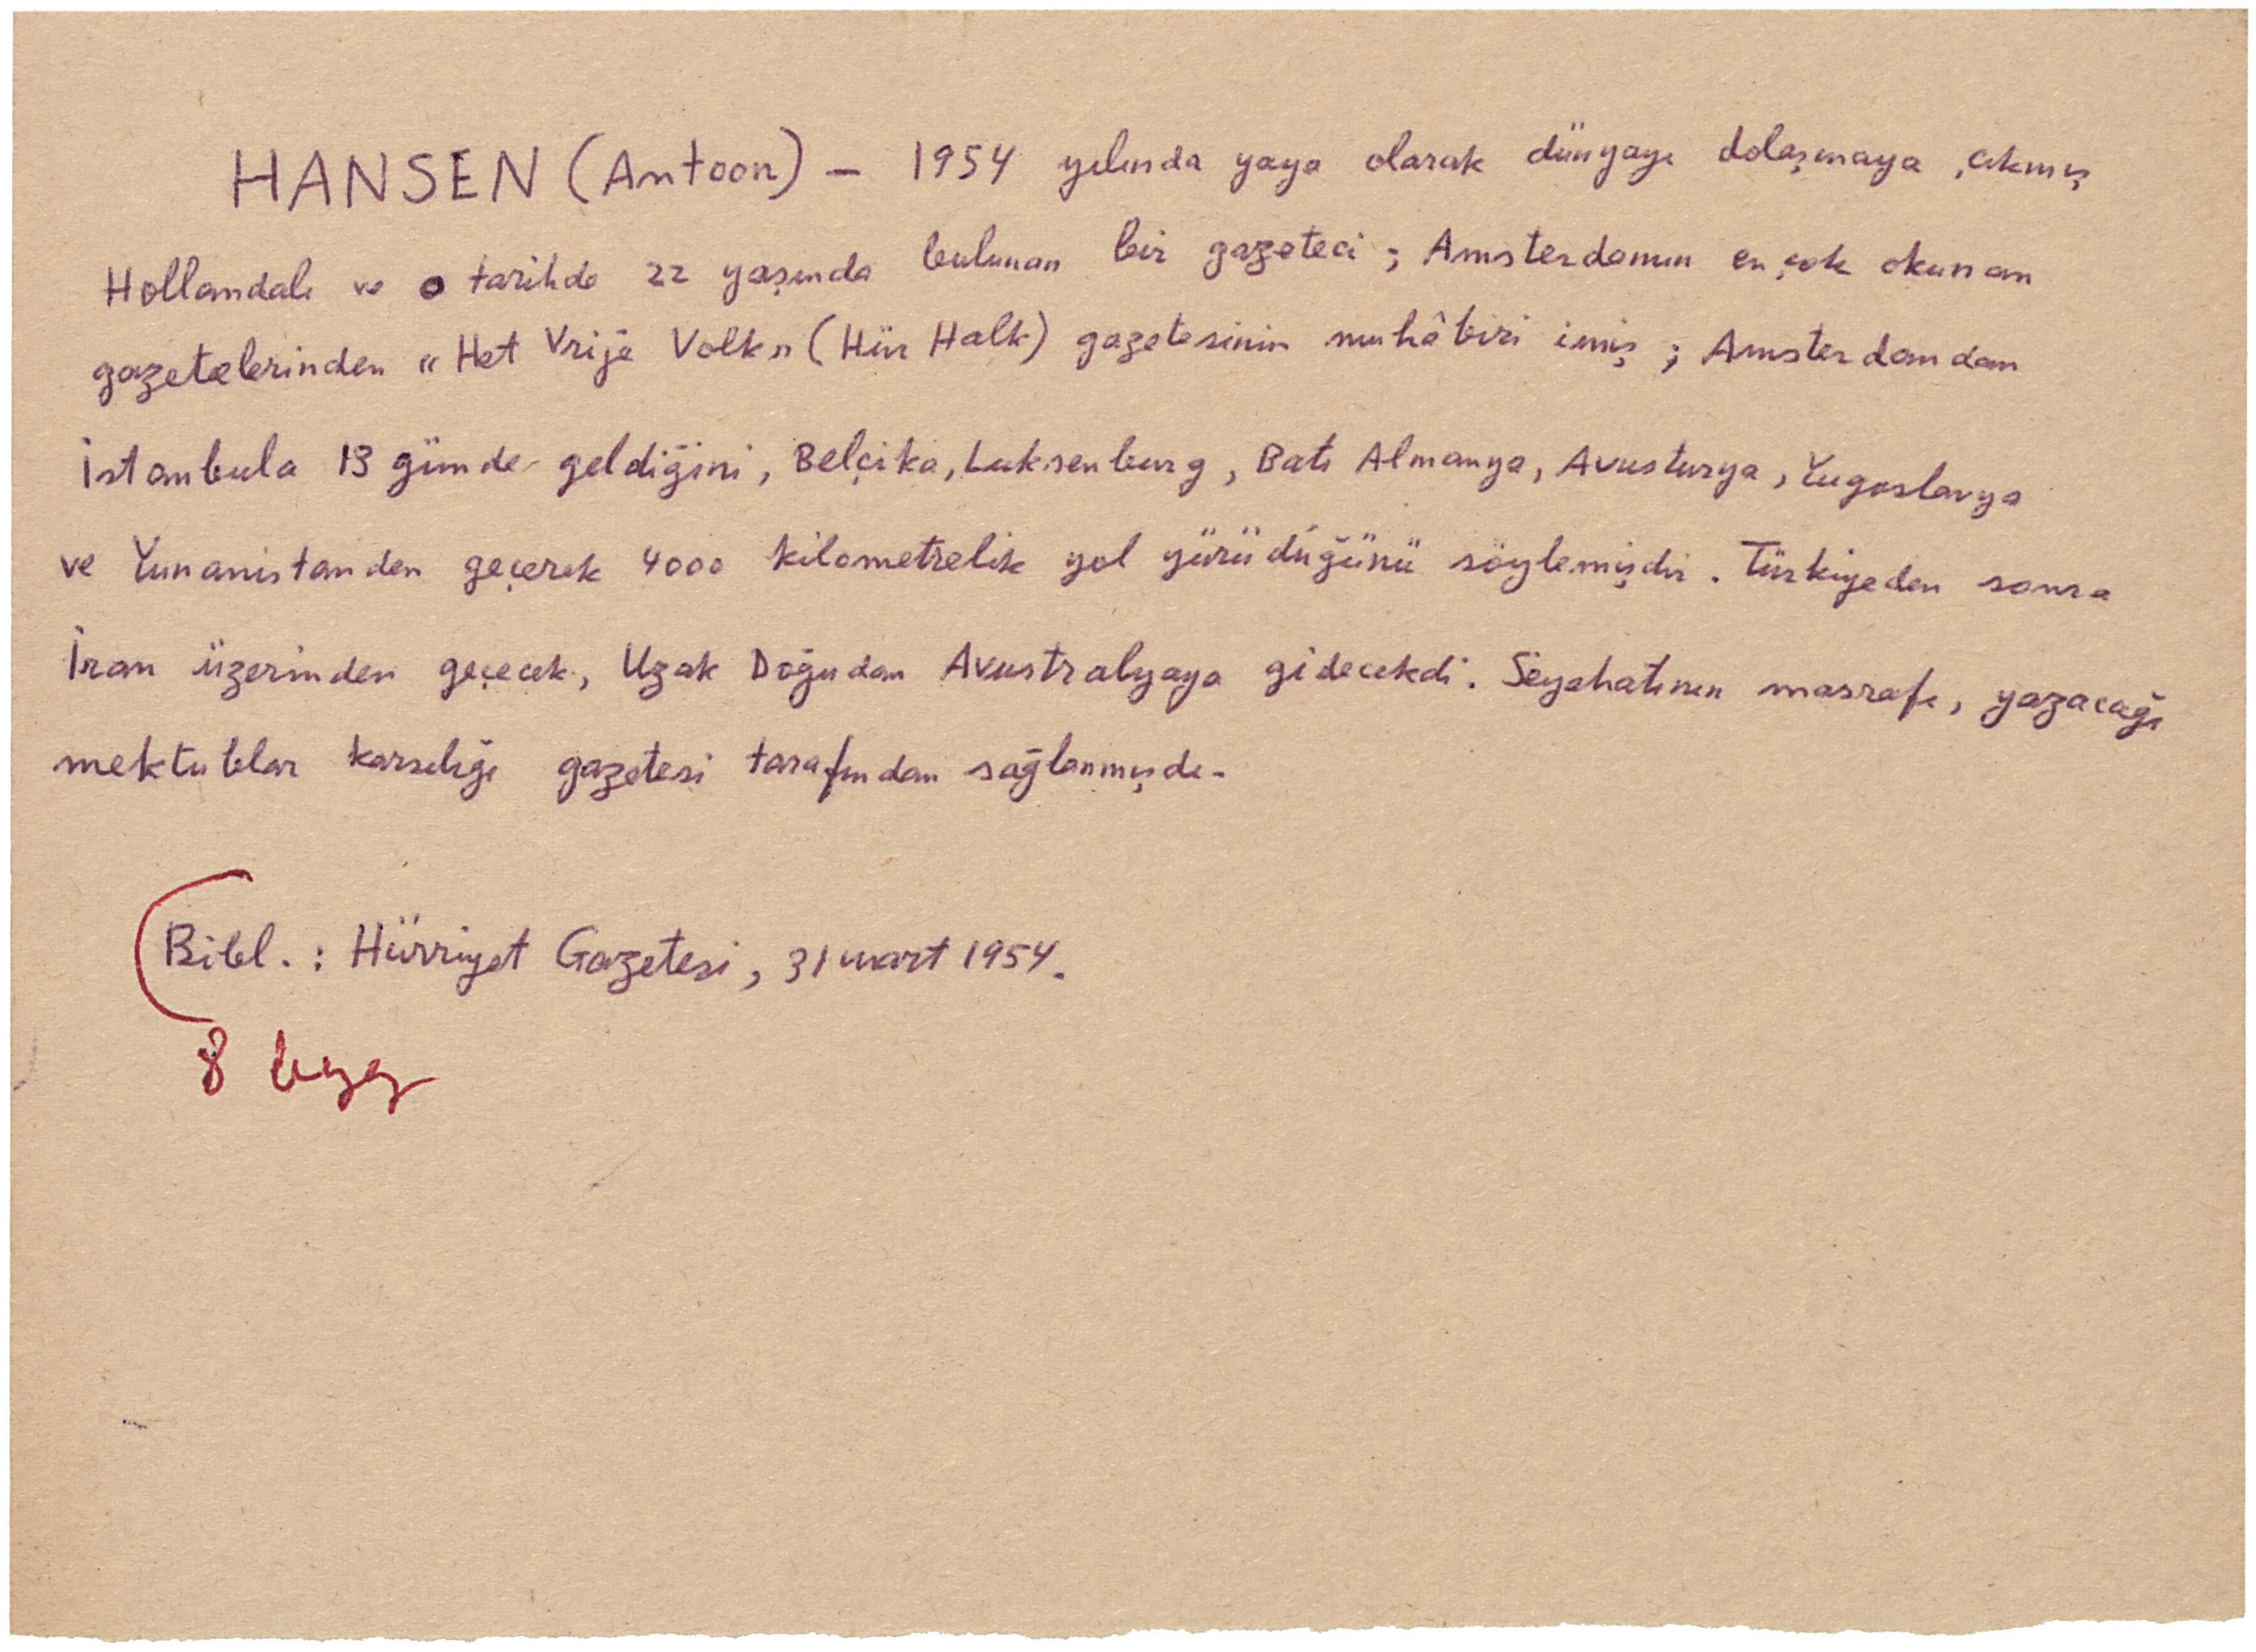 HANSEN (Antoon) – 1954 yılında yaya olarak dünyayı dolaşmaya çıkmış
Hollandalı ve o tarihde 22 yaşında bulunan bir gazeteci ; Amsterdamın en çok okunan
gazetelerinden "Het Vrije Volk" (Hür Halk) gazetesinin muhâbiri imiş ; Amsterdamdan
İstanbula 13 günde geldiğini, Belçika, Luksenburg, Batı Almanya, Avusturya, Yugoslavya
ve Yunanistanden geçerek 4000 kilometrelik yol yürüdüğünü söylemişdir. Türkiyeden sonra
İran üzerinden geçecek, Uzak Doğudan Avustralyaya gidecekdi. Seyahatının masrafı, yazacağı
mektublar karşılığı gazetesi tarafından sağlanmışdı.
Bibl. : Hürriyet Gazetesi, 31 mart 1954.
8